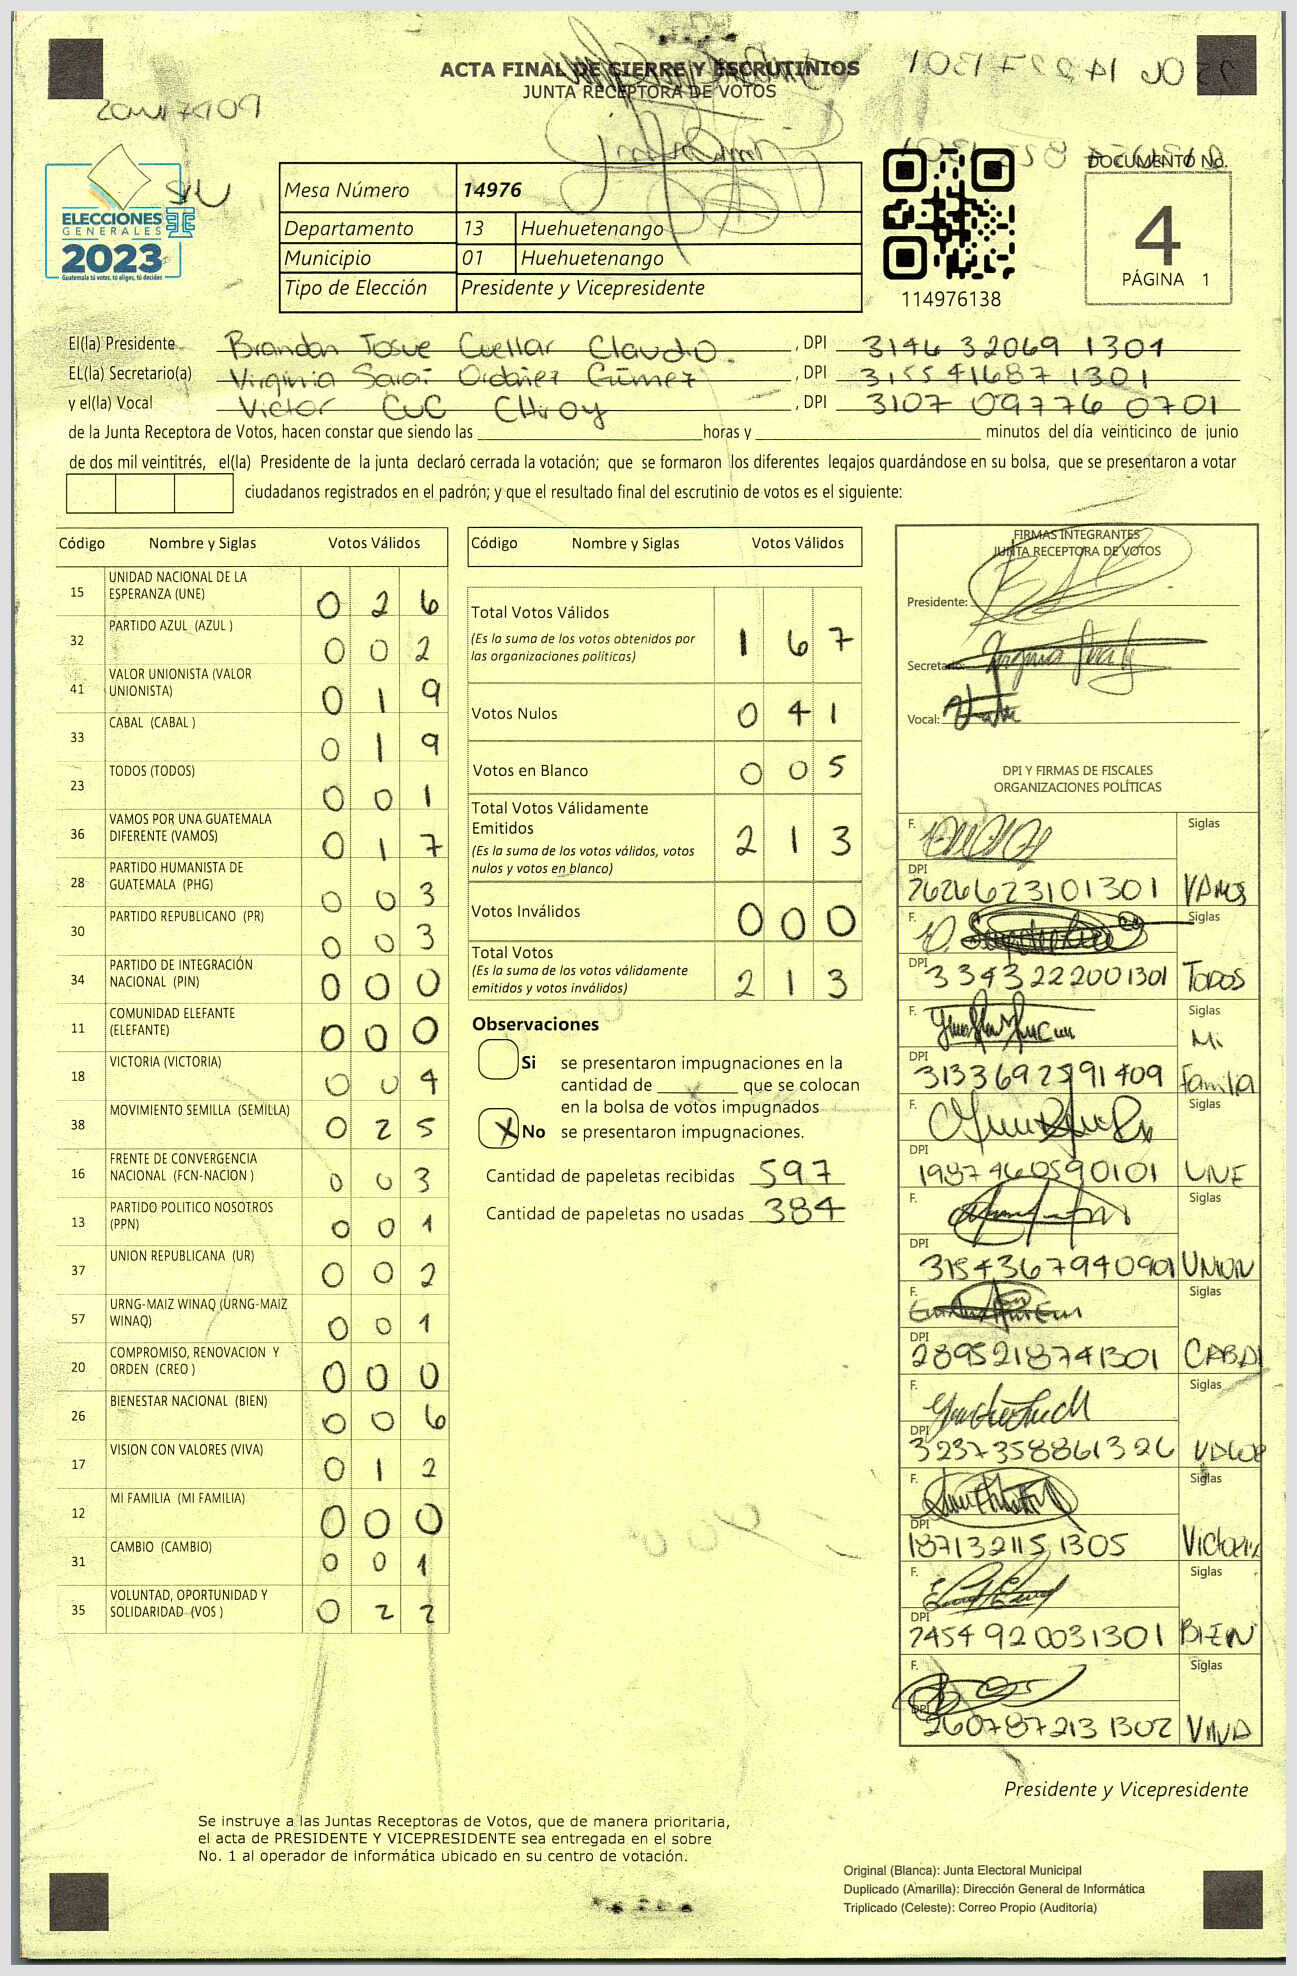 ACTA FINAL DE CIERRE Y ESCRUTINIOS
JUNTA RECEPTORA DE VOTOS
DOCUMENTO No.
4
PÁGINA 1
ELECCIONES
GENERALES
2023
Guatemala tú votas, tú eliges, tú decides
Mesa Número 14976
Departamento 13 Huehuetenango
Municipio 01 Huehuetenango
Tipo de Elección Presidente y Vicepresidente
114976138
El(la) Presidente Brandon Josue Cuellar Claudio. , DPI 3146 32069 1301
EL(la) Secretario(a) Virginia Sarai Ordoñez Gómez , DPI 315541687 1301
y el(la) Vocal Victor CUC CHroy , DPI 3107 09776 0701
de la Junta Receptora de Votos, hacen constar que siendo las horas y minutos del día veinticinco de junio
de dos mil veintitrés, el(la) Presidente de la junta declaró cerrada la votación; que se formaron los diferentes legajos guardándose en su bolsa, que se presentaron a votar
ciudadanos registrados en el padrón; y que el resultado final del escrutinio de votos es el siguiente:
Código Nombre y Siglas Votos Válidos
15 UNIDAD NACIONAL DE LA ESPERANZA (UNE) 0 2 6
32 PARTIDO AZUL (AZUL ) 0 0 2
41 VALOR UNIONISTA (VALOR UNIONISTA) 0 1 9
33 CABAL (CABAL ) 0 1 9
23 TODOS (TODOS) 0 0 1
36 VAMOS POR UNA GUATEMALA DIFERENTE (VAMOS) 0 1 7
28 PARTIDO HUMANISTA DE GUATEMALA (PHG) 0 0 3
30 PARTIDO REPUBLICANO (PR) 0 0 3
34 PARTIDO DE INTEGRACIÓN NACIONAL (PIN) 0 0 0
11 COMUNIDAD ELEFANTE (ELEFANTE) 0 0 0
18 VICTORIA (VICTORIA) 0 0 4
38 MOVIMIENTO SEMILLA (SEMILLA) 0 2 5
16 FRENTE DE CONVERGENCIA NACIONAL (FCN-NACION ) 0 0 3
13 PARTIDO POLITICO NOSOTROS (PPN) 0 0 1
37 UNION REPUBLICANA (UR) 0 0 2
57 URNG-MAIZ WINAQ (URNG-MAIZ WINAQ) 0 0 1
20 COMPROMISO, RENOVACION Y ORDEN (CREO ) 0 0 0
26 BIENESTAR NACIONAL (BIEN) 0 0 6
17 VISION CON VALORES (VIVA) 0 1 2
12 MI FAMILIA (MI FAMILIA) 0 0 0
31 CAMBIO (CAMBIO) 0 0 1
35 VOLUNTAD, OPORTUNIDAD Y SOLIDARIDAD (VOS ) 0 2 2
Código Nombre y Siglas Votos Válidos
Total Votos Válidos 1 6 7
(Es la suma de los votos obtenidos por
las organizaciones políticas)
Votos Nulos 0 4 1
Votos en Blanco 0 0 5
Total Votos Válidamente
Emitidos 2 1 3
(Es la suma de los votos válidos, votos
nulos y votos en blanco)
Votos Inválidos 0 0 0
Total Votos 2 1 3
(Es la suma de los votos válidamente
emitidos y votos inválidos)
Observaciones
Si se presentaron impugnaciones en la
cantidad de x que se colocan
en la bolsa de votos impugnados
X No se presentaron impugnaciones.
Cantidad de papeletas recibidas 597
Cantidad de papeletas no usadas 384
FIRMAS INTEGRANTES
JUNTA RECEPTORA DE VOTOS
Presidente:
Secretario:
Vocal:
DPI Y FIRMAS DE FISCALES
ORGANIZACIONES POLÍTICAS
F. Siglas
DPI 2626623101301 VAMOS
F. Siglas
DPI 3343222001301 TODOS
F. Siglas
DPI 3133692591409 Mi Familia
F. Siglas
DPI 1987460590101 UNE
F. Siglas
DPI 3154367940901 UNION
F. Siglas
DPI 2895218741301 CABAL
F. Siglas
DPI 3237358861326 VALOR
F. Siglas
DPI 187132115 1305 Victoria
F. Siglas
DPI 2454920031301 BIEN
F. Siglas
DPI 260787213 1302 VIVA
Presidente y Vicepresidente
Se instruye a las Juntas Receptoras de Votos, que de manera prioritaria,
el acta de PRESIDENTE Y VICEPRESIDENTE sea entregada en el sobre
No. 1 al operador de informática ubicado en su centro de votación.
Original (Blanca): Junta Electoral Municipal
Duplicado (Amarilla): Dirección General de Informática
Triplicado (Celeste): Correo Propio (Auditoría)